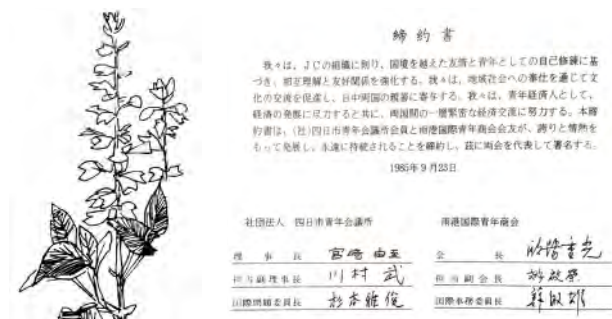 締約書
我々は、JCの組織に則り、国境を越えた友情と青年としての自己修錬に基
づき、相互理解と友好関係を強化する。我々は、地域社会への奉仕を通じて文
化の交流を促進し、日中両国の親善に寄与する。我々は、青年経済人として、
経済の発展に尽力すると共に、両国間の一層緊密な経済交流に努力する。本締
約書は、(社)四日市青年会議所会員と南港国際青年商会会友が、誇りと情熱を
もって発展し、永遠に持続されることを締約し、茲に両会を代表して署名する。
1985年9月23日
社団法人 四日市青年会議所
理事長 宮﨑由至
担当副理事長 川村武
国際問題委員長 杉本雅俊
南港国際青年商会
会長
担当副会長
国際事務委員長 蘇敏雄